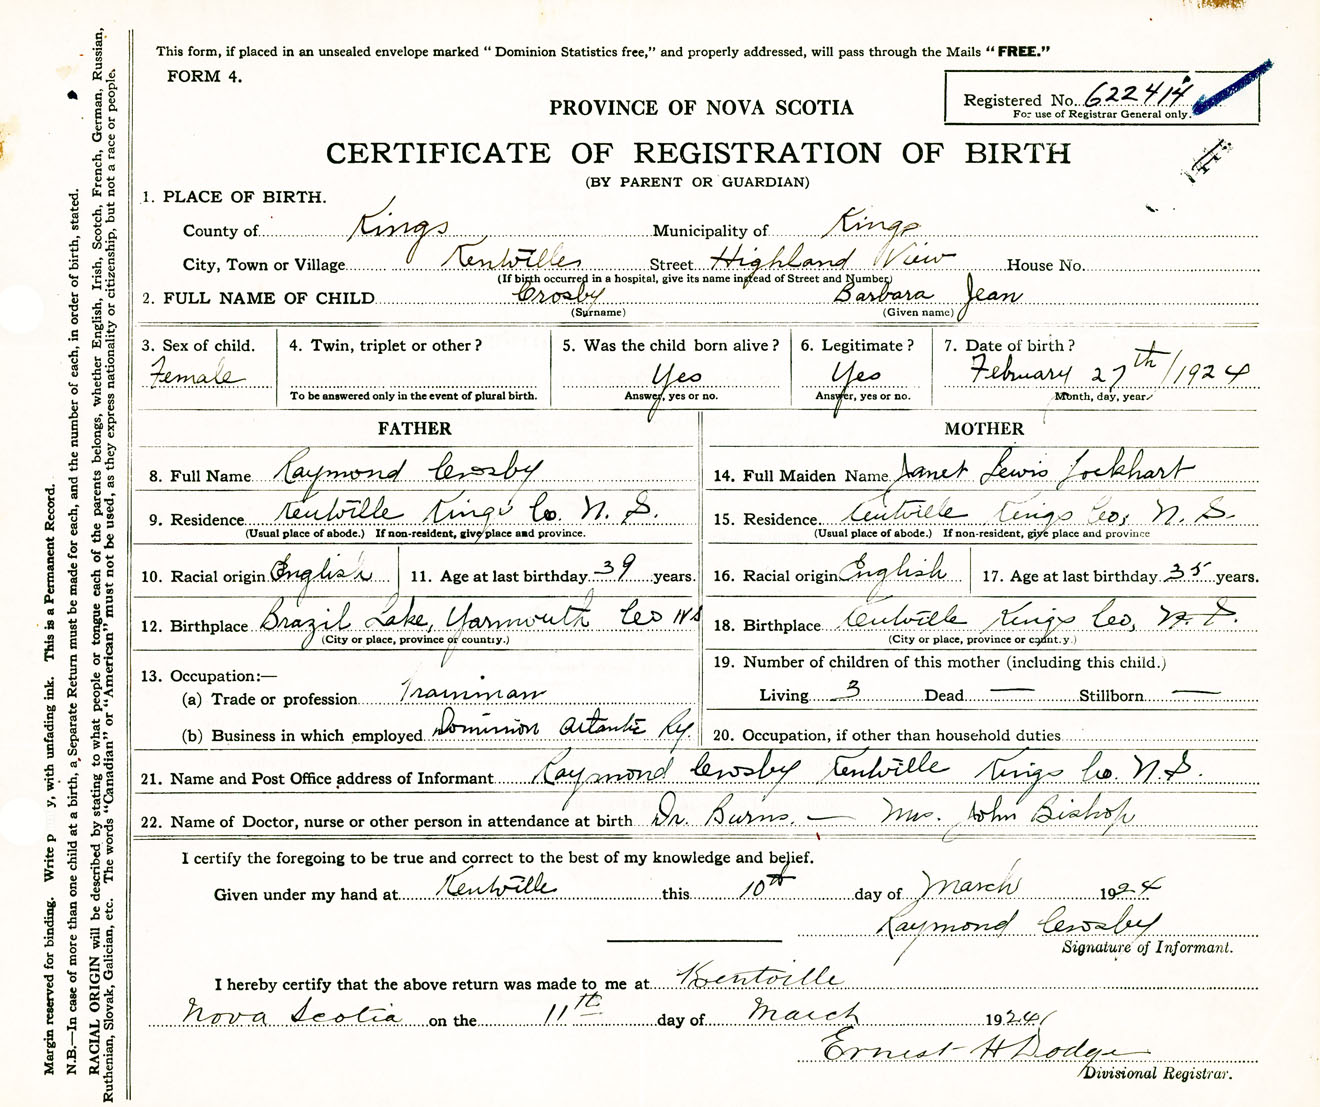 This form, if placed in an unsealed envelope marked "Dominion Statistics free," and properly addressed, will pass through the Mails "FREE."
FORM 4.
Registered No. 622414
For use of Registrar General only.
PROVINCE OF NOVA SCOTIA
CERTIFICATE OF REGISTRATION OF BIRTH
(BY PARENT OR GUARDIAN)
1. PLACE OF BIRTH.
County of Kings Municipality of Kings
City, Town or Village Kentville Street Highland View House No.
(If birth occurred in a hospital, give its name instead of Street and Number)
2. FULL NAME OF CHILD Crosby Barbara Jean
(Surname) (Given name)
3. Sex of child. 4. Twin, triplet or other? 5. Was the child born alive? 6. Legitimate? 7. Date of birth?
Female Yes Yes February 27th/1924
To be answered only in the event of plural birth. Answer, yes or no. Answer, yes or no. Month, day, year
FATHER MOTHER
8. Full Name Raymond Crosby 14. Full Maiden Name Janet Lewis Lockhart
9. Residence Kentville Kings Co. N. S. 15. Residence. Kentville Kings Co, N. S.
(Usual place of abode.) If non-resident, give place and province. (Usual place of abode.) If non-resident, give place and province
10. Racial origin English 11. Age at last birthday 39 years. 16. Racial origin English 17. Age at last birthday 35 years.
12. Birthplace Brazil Lake, Yarmouth Co NS 18. Birthplace Kentville Kings Co, N. S.
(City or place, province or country.) (City or place, province or country.)
13. Occupation:— 19. Number of children of this mother (including this child.)
(a) Trade or profession Trainman Living 3 Dead — Stillborn —
(b) Business in which employed Dominion Atlantic Ry. 20. Occupation, if other than household duties
21. Name and Post Office address of Informant Raymond Crosby Kentville Kings Co. N. S.
22. Name of Doctor, nurse or other person in attendance at birth Dr. Burns. — Mrs. John Bishop
I certify the foregoing to be true and correct to the best of my knowledge and belief.
Given under my hand at Kentville this 10th day of March 1924
Raymond Crosby
Signature of Informant.
I hereby certify that the above return was made to me at Kentville
Nova Scotia on the 11th day of March 1924
Ernest H Dodge
Divisional Registrar.
Margin reserved for binding. Write p y, with unfading ink. This is a Permanent Record.
N.B.—In case of more than one child at a birth, a Separate Return must be made for each, and the number of each, in order of birth, stated.
RACIAL ORIGIN will be described by stating to what people or tongue each of the parents belongs, whether English, Irish, Scotch, French, German, Russian,
Ruthenian, Slovak, Galician, etc. The words "Canadian" or "American" must not be used, as they express nationality or citizenship, but not a race or people.